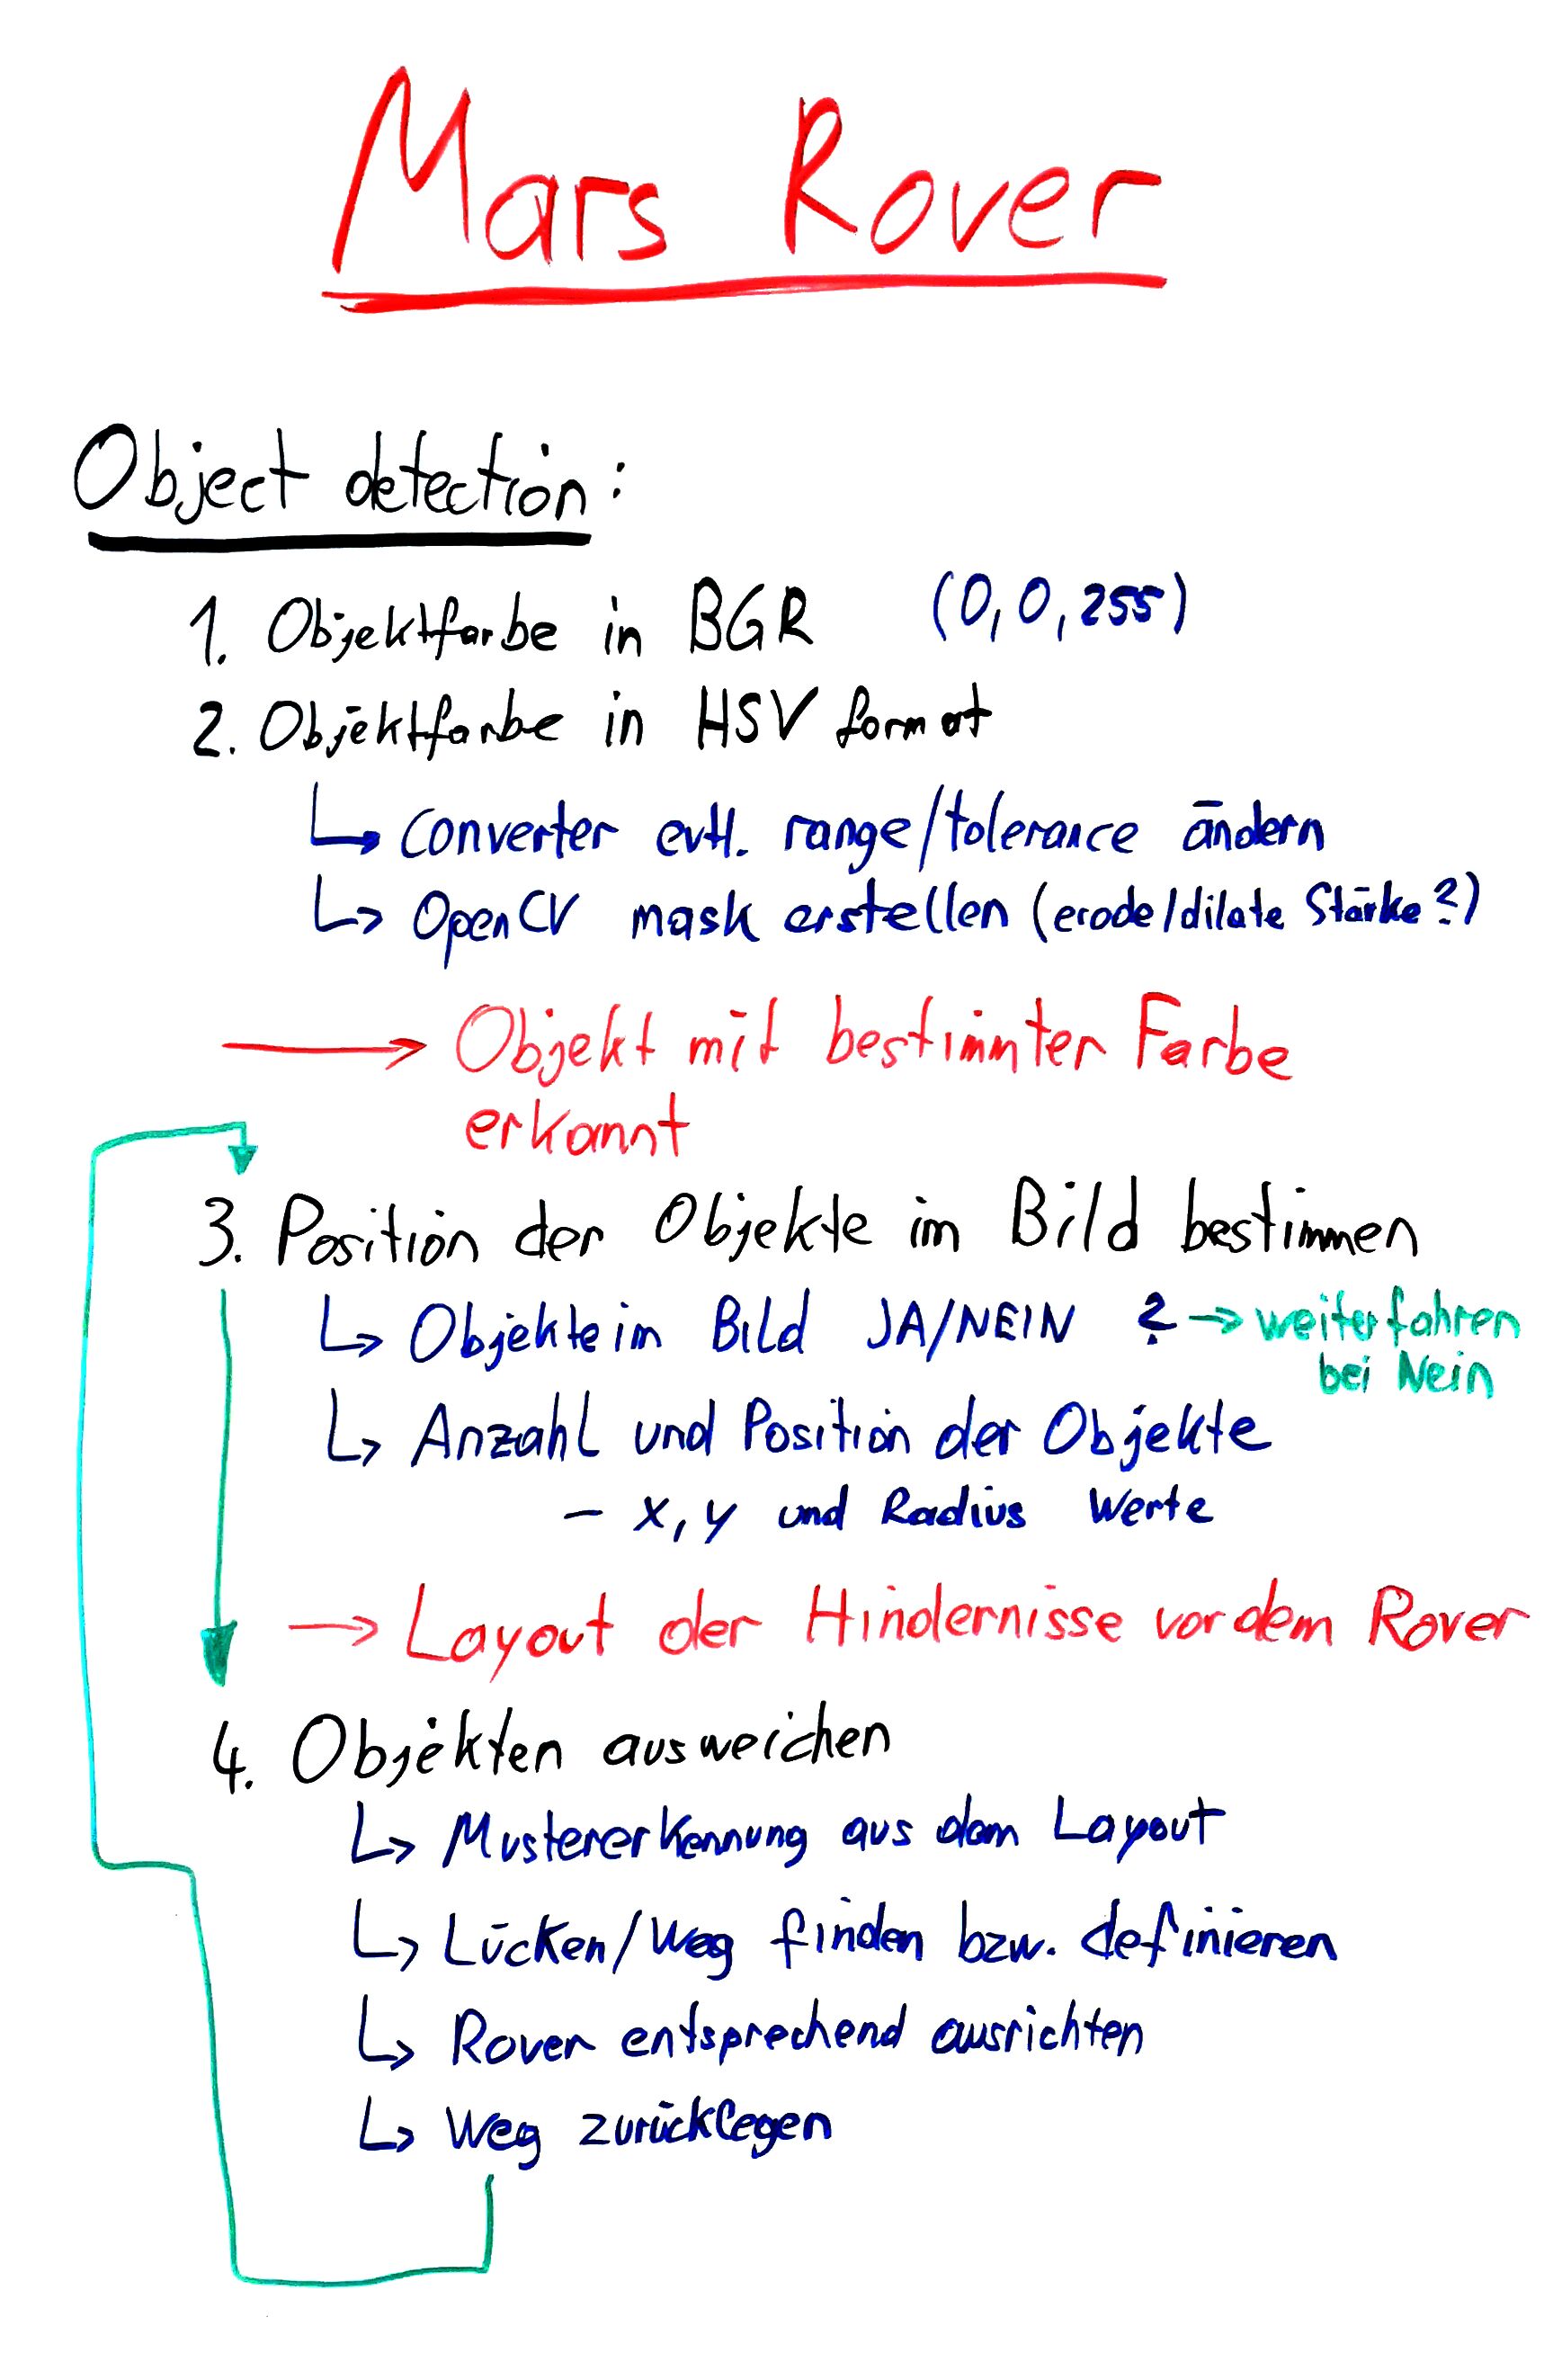 Mars Rover
Object detection:
1. Objektfarbe in BGR (0,0,255)
2. Objektfarbe in HSV format
↳ Converter evtl. range/tolerance ändern
↳ OpenCV mask erstellen (erode/dilate Stärke?)
→ Objekt mit bestimmter Farbe
erkannt
3. Position der Objekte im Bild bestimmen
↳ Objekte im Bild JA/NEIN ? → weiterfahren
bei Nein
↳ Anzahl und Position der Objekte
- x, y und Radius Werte
→ Layout der Hindernisse vor dem Rover
4. Objekten ausweichen
↳ Mustererkennung aus dem Layout
↳ Lücken/Weg finden bzw. definieren
↳ Rover entsprechend ausrichten
↳ Weg zurücklegen